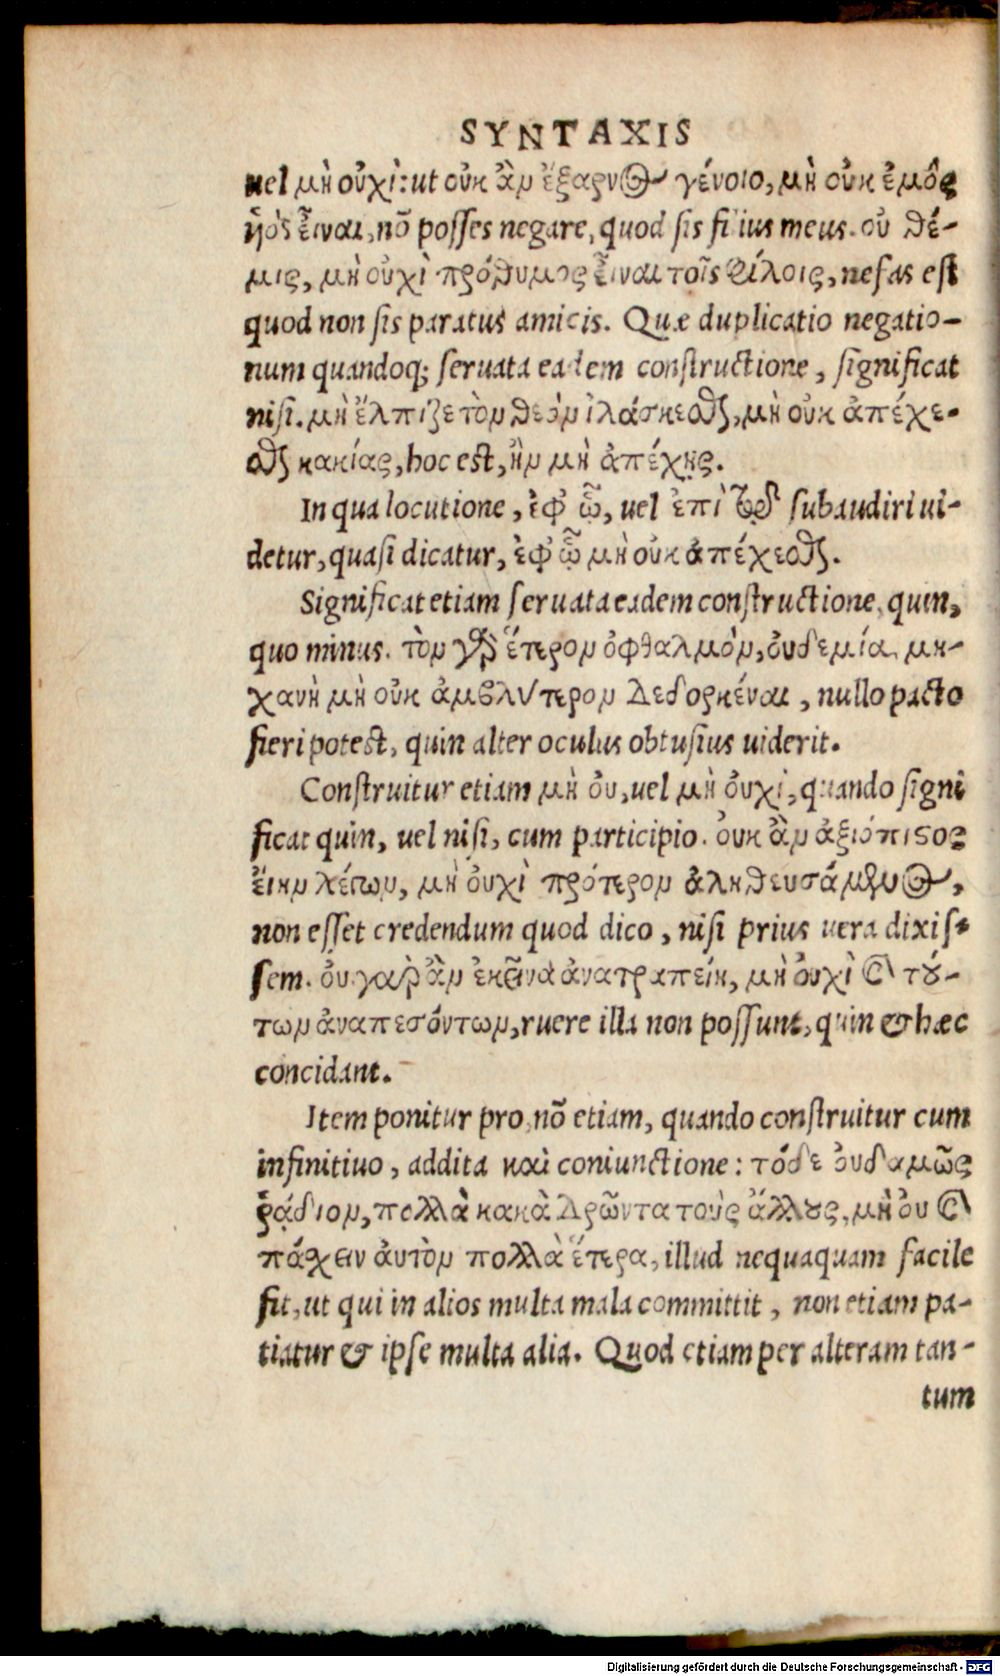 SYNTAXIS
uel μὴ οὐχὶ: ut οὐκ ἂν ἔξαρνος γένοιο, μὴ οὐκ ἐμὸς
ὑὸς εἶναι, nõ posses negare, quod sis filius meus. οὐ θέ-
μις, μὴ οὐχὶ πρόθυμος εἶναι τοῖς φίλοις, nefas est
quod non sis paratus amicis. Quæ duplicatio negatio-
num quandoq; seruata eadem constructione, significat
nisi. μὴ ἔλπιζε τὸν θεὸν ἱλάσκεσθαι, μὴ οὐκ ἀπέχε-
σθαι κακίας, hoc est, ἢν μὴ ἀπέχῃς.
In qua locutione, ἐφ' ᾧ, uel ἐπὶ τῷ subaudiri ui-
detur, quasi dicatur, ἐφ' ᾧ μὴ οὐκ ἀπέχεσθαι.
Significat etiam seruata eadem constructione, quin,
quo minus. τὸν γὰρ ἕτερον ὀφθαλμὸν, οὐδεμία μη-
χανὴ μὴ οὐκ ἀμβλύτερον δεδορκέναι, nullo pacto
fieri potest, quin alter oculus obtusius uiderit.
Construitur etiam μὴ οὐ, uel μὴ οὐχὶ, quando signi
ficat quin, uel nisi, cum participio. οὐκ ἂν ἀξιόπιστος
εἴην λέγων, μὴ οὐχὶ πρότερον ἀληθευσάμενος,
non esset credendum quod dico, nisi prius uera dixis-
sem. οὐ γὰρ ἂν ἐκεῖνα ἀνατραπείη, μὴ οὐχὶ καὶ τού-
των ἀναπεσόντων, ruere illa non possunt, quin & hæc
concidant.
Item ponitur pro nõ etiam, quando construitur cum
infinitiuo, addita καὶ coniunctione: τόδε οὐδαμῶς
ῥᾴδιον, πολλὰ κακὰ δρῶντα τοὺς ἄλλους, μὴ οὐ καὶ
πάσχειν αὐτὸν πολλὰ ἕτερα, illud nequaquam facile
fit, ut qui in alios multa mala committit, non etiam pa-
tiatur & ipse multa alia. Quod etiam per alteram tan-
tum
Digitalisierung gefördert durch die Deutsche Forschungsgemeinschaft - DFG